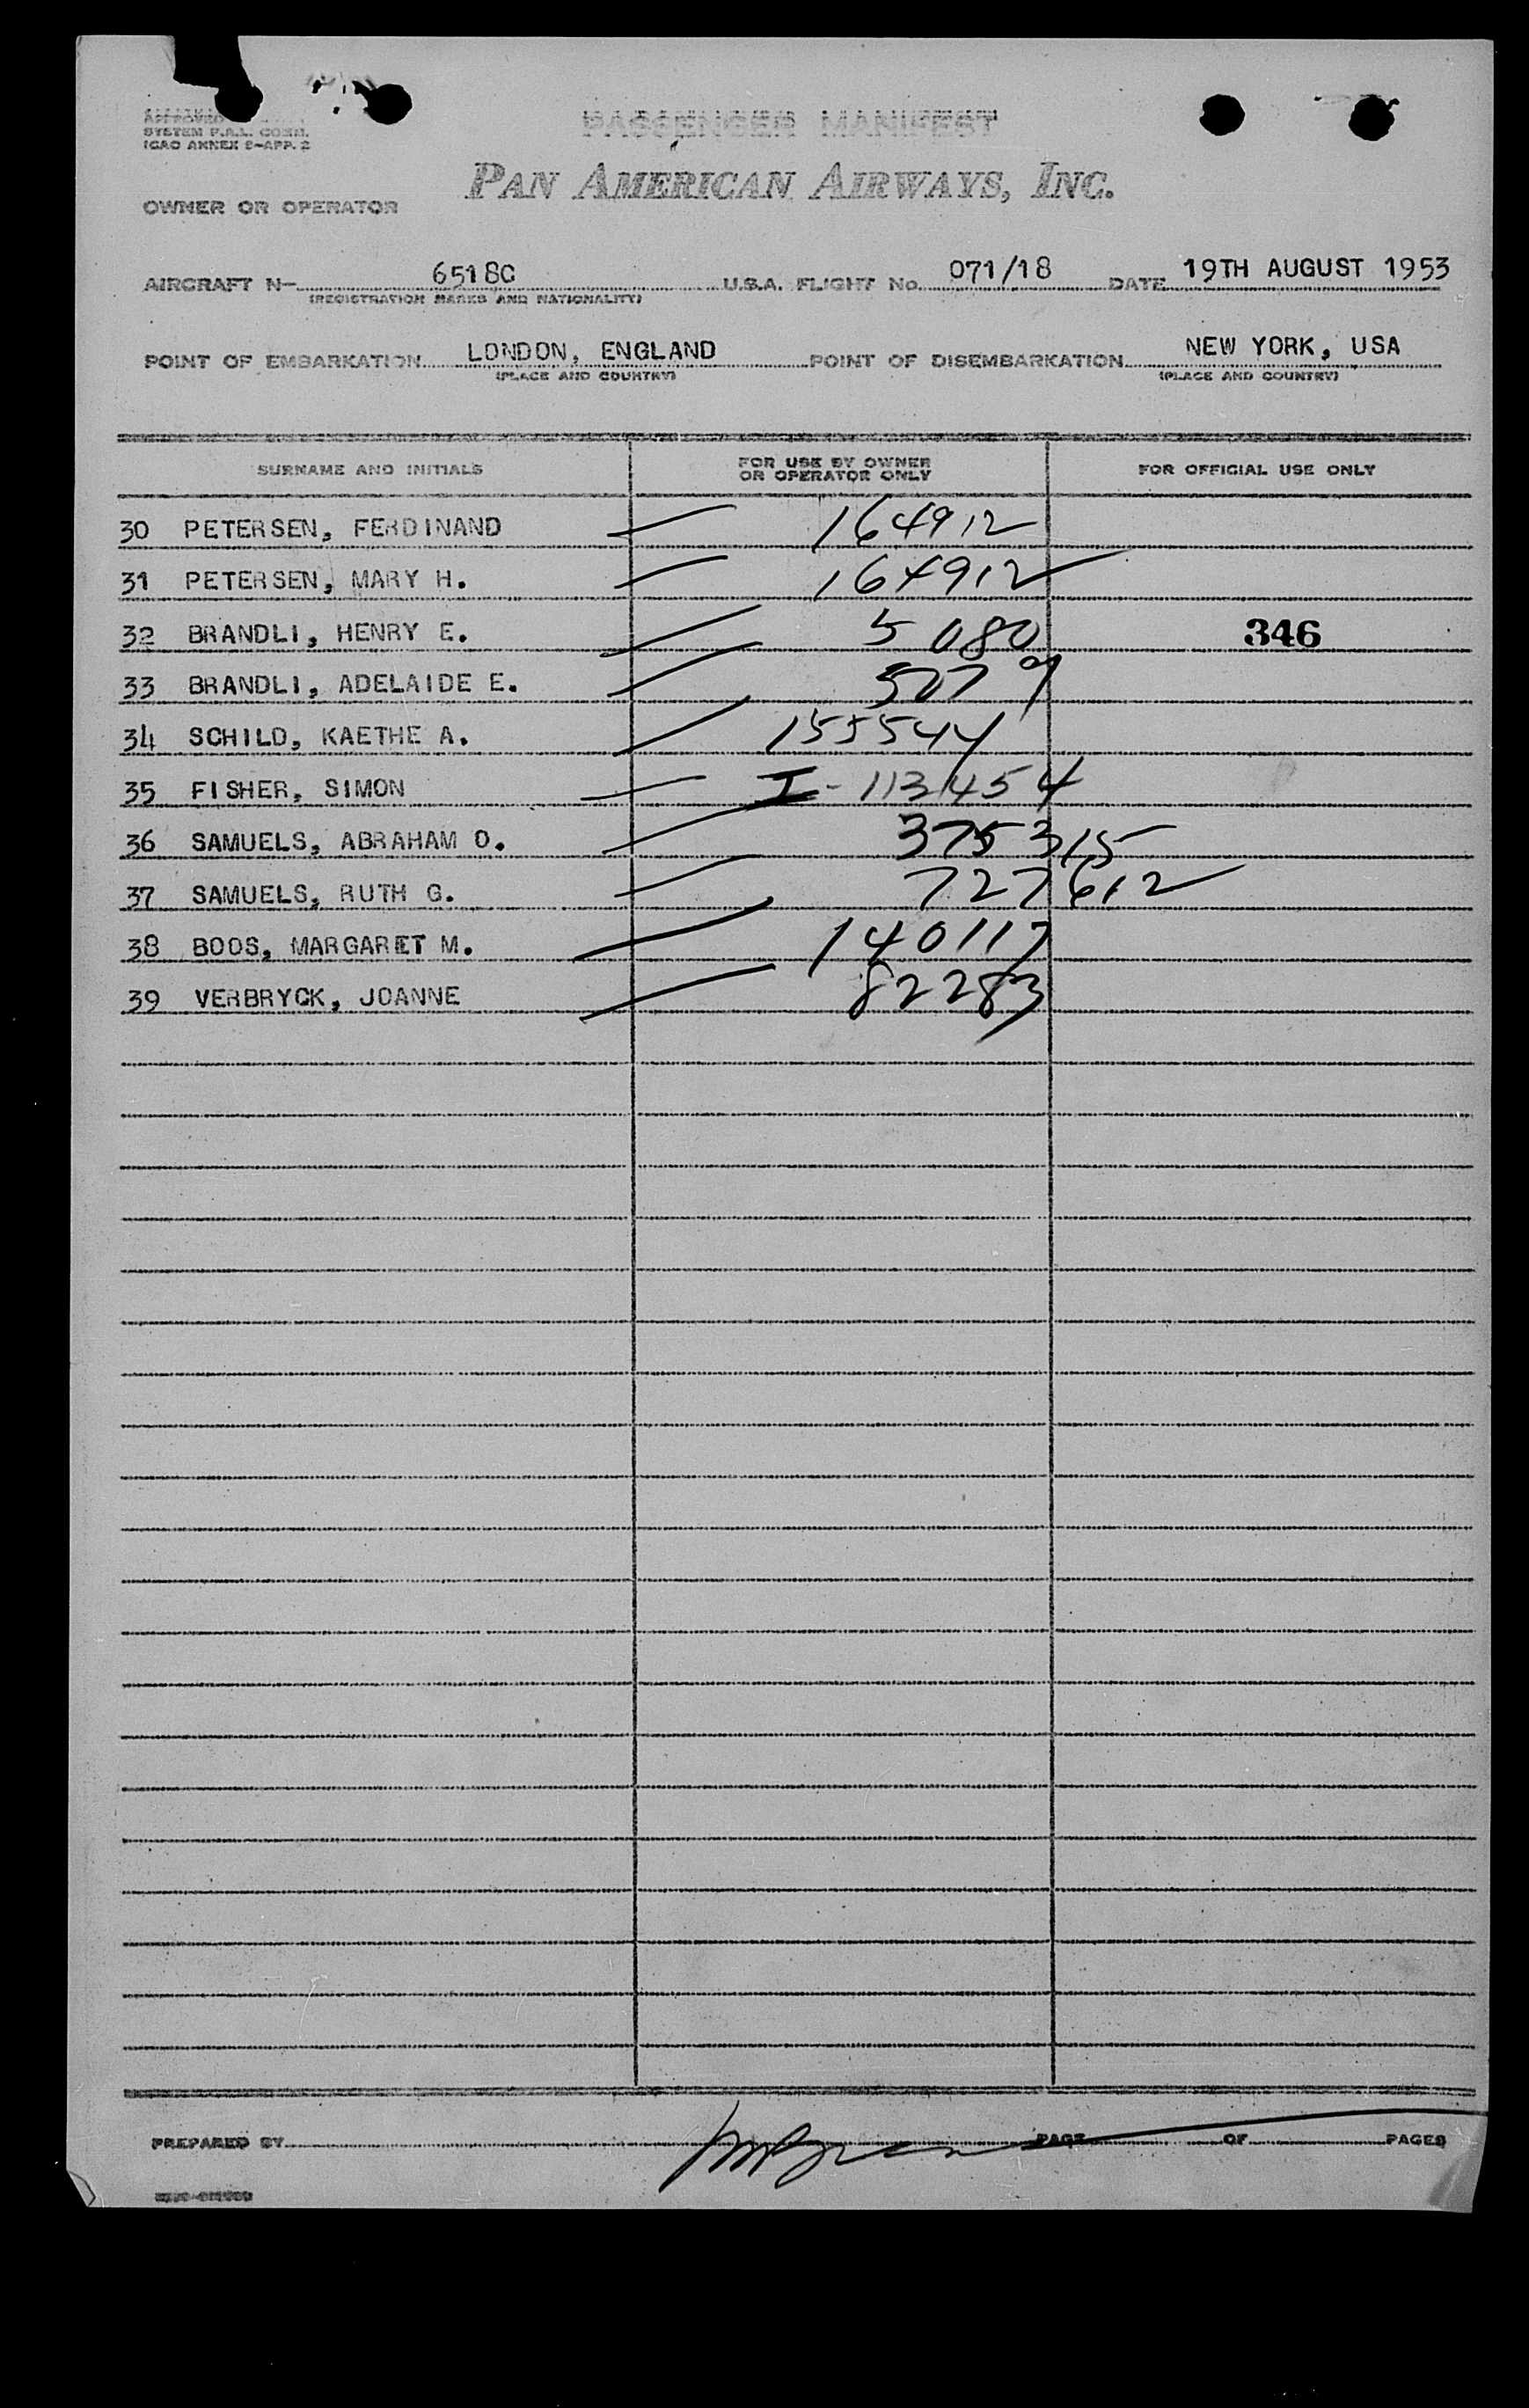 APPROVED
SYSTEM P.A.L. COMM.
ICAO ANNEX 9-APP. 2
PASSENGER MANIFEST
PAN AMERICAN AIRWAYS, INC.
OWNER OR OPERATOR
AIRCRAFT N- 6518C U.S.A. FLIGHT No. 071/18 DATE 19TH AUGUST 1953
(REGISTRATION MARKS AND NATIONALITY)
POINT OF EMBARKATION LONDON, ENGLAND POINT OF DISEMBARKATION NEW YORK, USA
(PLACE AND COUNTRY) (PLACE AND COUNTRY)
SURNAME AND INITIALS FOR USE BY OWNER OR OPERATOR ONLY FOR OFFICIAL USE ONLY
30 PETERSEN, FERDINAND 164912
31 PETERSEN, MARY H. 164912
32 BRANDLI, HENRY E. 5080 346
33 BRANDLI, ADELAIDE E. 5079
34 SCHILD, KAETHE A. 155544
35 FISHER, SIMON I-113454
36 SAMUELS, ABRAHAM O. 375315
37 SAMUELS, RUTH G. 727612
38 BOOS, MARGARET M. 140117
39 VERBRYCK, JOANNE 82283
PREPARED BY PAGE OF PAGES